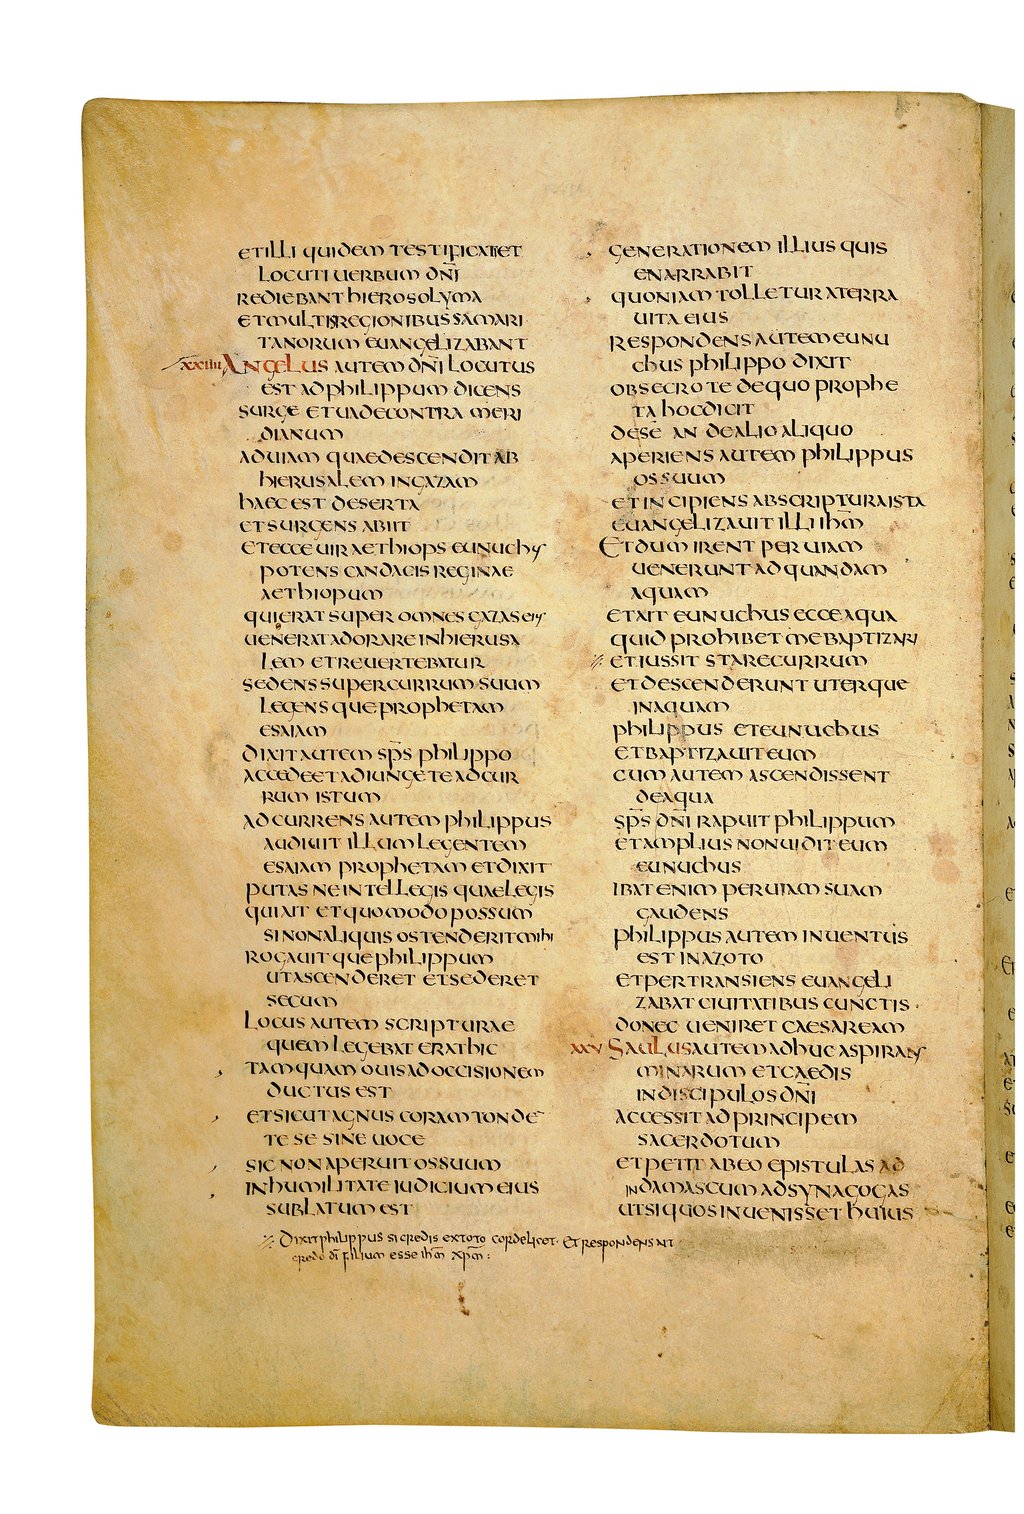 et illi quidem testificati et
locuti uerbum dn̄i
rediebant hierosolyma
et multis regionibus samari
tanorum euangelizabant
xxiiii Angelus autem dn̄i locutus
est ad philippum dicens
surge et uade contra meri
dianum
ad uiam quae descendit ab
hierusalem in gazam
haec est deserta
et surgens abiit
et ecce uir aethiops eunuchus
potens candacis reginae
aethiopum
qui erat super omnes gazas eius
uenerat adorare in hierusa
lem et reuertebatur
sedens super currum suum
legensque prophetam
esaiam
dixit autem sp̄s philippo
accede et adiunge te ad cur
rum istum
adcurrens autem philippus
audiuit illum legentem
esaiam prophetam et dixit
putasne intellegis quae legis
qui ait et quomodo possum
si non aliquis ostenderit mihi
rogauitque philippum
ut ascenderet et sederet
secum
Locus autem scripturae
quem legebat erat hic
tamquam ouis ad occisionem
ductus est
et sicut agnus coram tonde
te se sine uoce
sic non aperuit os suum
in humilitate iudicium eius
sublatum est
generationem illius quis
enarrabit
quoniam tolletur a terra
uita eius
respondens autem eunu
chus philippo dixit
obsecro te de quo prophe
ta hoc dicit
de se an de alio aliquo
aperiens autem philippus
os suum
et incipiens ab scriptura ista
euangelizauit illi ih̄m
Et dum irent per uiam
uenerunt ad quandam
aquam
et ait eunuchus ecce aqua
quid prohibet me baptizari
·/. et iussit stare currum
et descenderunt uterque
in aquam
philippus et eunuchus
et baptizauit eum
cum autem ascendissent
de aqua
sp̄s dn̄i rapuit philippum
et amplius non uidit eum
eunuchus
ibat enim per uiam suam
gaudens
philippus autem inuentus
est in azoto
et pertransiens euangeli
zabat ciuitatibus cunctis
donec ueniret caesaream
xxv Saulus autem adhuc aspirans
minarum et caedis
in discipulos dn̄i
accessit ad principem
sacerdotum
et petit ab eo epistulas ad
in damascum ad synagogas
ut si quos inuenisset huius
·/. Dixit philippus si credis ex toto corde licet. Et respondens ait
credo dī filium esse ih̄m xp̄m :